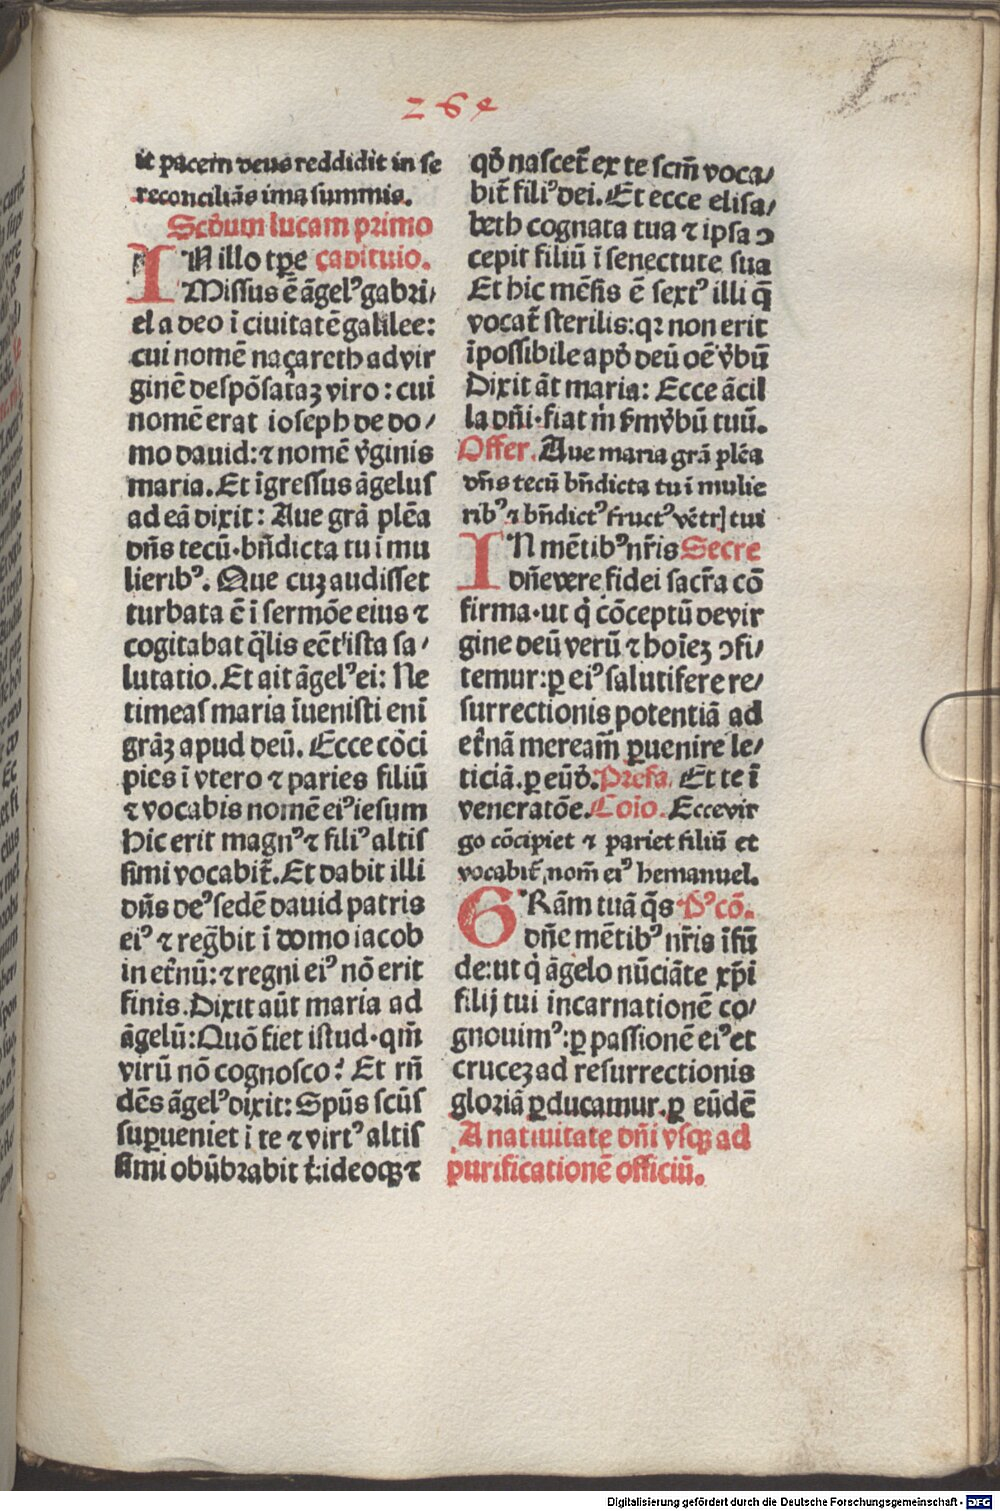 264
it pacem deus reddidit in se
reconciliãs ima summis.
Scd̄um lucam primo
IN illo tp̄e capitulo.
Missus ē ãgelꝰ gabri/
el a deo ĩ ciuitatē galilee:
cui nomē naçareth ad vir
ginē despõsataʒ viro: cui
nomē erat ioseph de do/
mo dauid: ⁊ nomē v̄ginis
maria. Et ĩgressus ãgelus
ad eã dixit: Aue grã plẽa
dñs tecũ· bñdicta tu i mu
lieribꝰ. Que cuʒ audisset
turbata ē ĩ sermõe eius ⁊
cogitabat q̄lis eēt ista sa/
lutatio. Et ait ãgelꝰ ei: Ne
timeas maria ĩuenisti eni
grãʒ apud deũ. Ecce cõci
pies ĩ vtero ⁊ paries filiũ
⁊ vocabis nomē eiꝰ iesum
hic erit magnꝰ ⁊ filiꝰ altis
simi vocabit̄. Et dabit illi
dñs deꝰ sedē dauid patris
eiꝰ ⁊ regñbit ĩ domo iacob
in et̄nũ: ⁊ regni eiꝰ nõ erit
finis. Dixit aũt maria ad
ãgelũ: Quõ fiet istud· qm̃
virũ nõ cognosco? Et rñ
dēs ãgelꝰ dixit: Spũs scũs
suꝑueniet i te ⁊ virtꝰ altis
simi obũbrabit t̄: ideoqʒ ⁊
qd̄ nascet̄ ex te scm̃ voca/
bit̄ filiꝰ dei. Et ecce elisa/
beth cognata tua ⁊ ipsa ↄ
cepit filiũ ĩ senectute sua
Et hic mẽsis ē sextꝰ illi q̄
vocat̄ sterilis: qꝛ non erit
ĩpossibile apd̄ deũ oē v̄bũ
Dixit ãt maria: Ecce ãcil
la dñi· fiat m̃ ẜm v̄bũ tuũ.
Offer. Aue maria grã plẽa
dñs tecũ bñdicta tu ĩ mulie
ribꝰ ⁊ bñdictꝰ fructꝰ vẽtrꝭ tui
IN mẽtibꝰ nr̃is Secre
dñe vere fidei sacr̃a cõ
firma· ut q̇ cõceptũ de vir
gine deũ verũ ⁊ hoĩeʒ ↄfi/
temur: ꝑ eiꝰ salutifere re/
surrectionis potentiã ad
et̄nã meream̃ ꝑuenire le/
ticiã. ꝑ eũd̄. Prefa. Et te ĩ
veneratõe. Cõio. Ecce vir
go cõcipiet ⁊ pariet filiũ et
vocabit̄ nom̃ eiꝰ hemanuel.
GRãm tuã q̄s Pꝰ cõ.
dñe mẽtibꝰ nr̃is ĩfũ
de: ut q̇ ãgelo nũciãte xp̃i
filij tui incarnationē co/
gnouimꝰ: ꝑ passionē eiꝰ et
cruceʒ ad resurrectionis
gloriã ꝑducamur. ꝑ eũdē
A natiuitate dñi vsqʒ ad
purificationē officiũ.
Digitalisierung gefördert durch die Deutsche Forschungsgemeinschaft - DFG